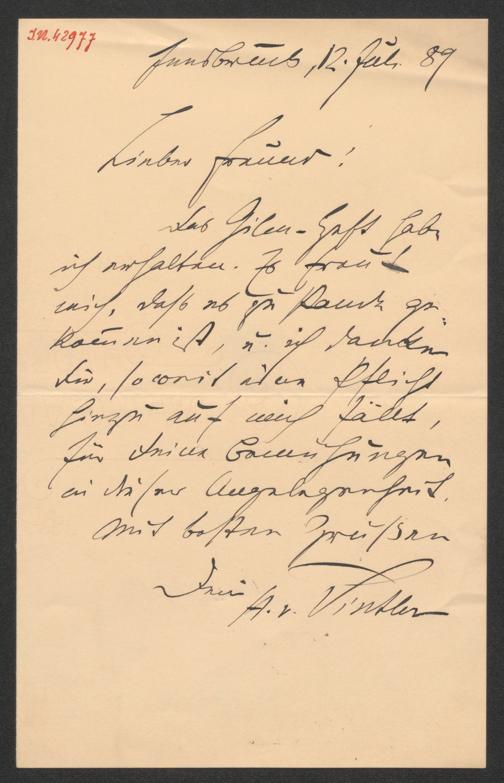 I.N. 42977
Innsbruck, 12. Juli 89
Lieber Freund!
Das Gilm-Heft habe
ich erhalten. Es freut
mich, daß es zu Stande ge
kommen ist, u. ich danke
Dir, soweit eine Pflicht
hiezu auf mich fällt,
für Deine Bemühungen
in dieser Angelegenheit.
Mit besten Grüßen
Dein
A. v. Vintler